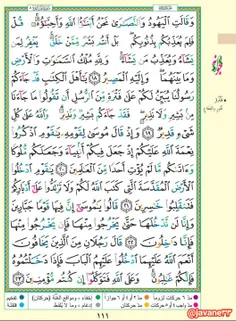 وَقَالَتِ ٱلْيَهُودُ وَٱلنَّصَٰرَىٰ نَحْنُ أَبْنَٰٓؤُا۟ ٱللَّهِ وَأَحِبَّٰٓؤُهُۥ ۚ قُلْ
فَلِمَ يُعَذِّبُكُم بِذُنُوبِكُم ۖ بَلْ أَنتُم بَشَرٌ مِّمَّنْ خَلَقَ ۚ يَغْفِرُ لِمَن
يَشَآءُ وَيُعَذِّبُ مَن يَشَآءُ ۚ وَلِلَّهِ مُلْكُ ٱلسَّمَٰوَٰتِ وَٱلْأَرْضِ
وَمَا بَيْنَهُمَا ۖ وَإِلَيْهِ ٱلْمَصِيرُ ١٨ يَٰٓأَهْلَ ٱلْكِتَٰبِ قَدْ جَآءَكُمْ
رَسُولُنَا يُبَيِّنُ لَكُمْ عَلَىٰ فَتْرَةٍ مِّنَ ٱلرُّسُلِ أَن تَقُولُوا۟ مَا جَآءَنَا
مِنۢ بَشِيرٍ وَلَا نَذِيرٍ ۖ فَقَدْ جَآءَكُم بَشِيرٌ وَنَذِيرٌ ۗ وَٱللَّهُ عَلَىٰ كُلِّ
شَىْءٍ قَدِيرٌ ١٩ وَإِذْ قَالَ مُوسَىٰ لِقَوْمِهِۦ يَٰقَوْمِ ٱذْكُرُوا۟
نِعْمَةَ ٱللَّهِ عَلَيْكُمْ إِذْ جَعَلَ فِيكُمْ أَنۢبِيَآءَ وَجَعَلَكُم مُّلُوكًا
وَءَاتَىٰكُم مَّا لَمْ يُؤْتِ أَحَدًا مِّنَ ٱلْعَٰلَمِينَ ٢٠ يَٰقَوْمِ ٱدْخُلُوا۟
ٱلْأَرْضَ ٱلْمُقَدَّسَةَ ٱلَّتِى كَتَبَ ٱللَّهُ لَكُمْ وَلَا تَرْتَدُّوا۟ عَلَىٰٓ أَدْبَارِكُمْ
فَتَنقَلِبُوا۟ خَٰسِرِينَ ٢١ قَالُوا۟ يَٰمُوسَىٰٓ إِنَّ فِيهَا قَوْمًا جَبَّارِينَ
وَإِنَّا لَن نَّدْخُلَهَا حَتَّىٰ يَخْرُجُوا۟ مِنْهَا فَإِن يَخْرُجُوا۟ مِنْهَا
فَإِنَّا دَٰخِلُونَ ٢٢ قَالَ رَجُلَانِ مِنَ ٱلَّذِينَ يَخَافُونَ
أَنْعَمَ ٱللَّهُ عَلَيْهِمَا ٱدْخُلُوا۟ عَلَيْهِمُ ٱلْبَابَ فَإِذَا دَخَلْتُمُوهُ
فَإِنَّكُمْ غَٰلِبُونَ ۚ وَعَلَى ٱللَّهِ فَتَوَكَّلُوٓا۟ إِن كُنتُم مُّؤْمِنِينَ ٢٣
١١١
@javane42